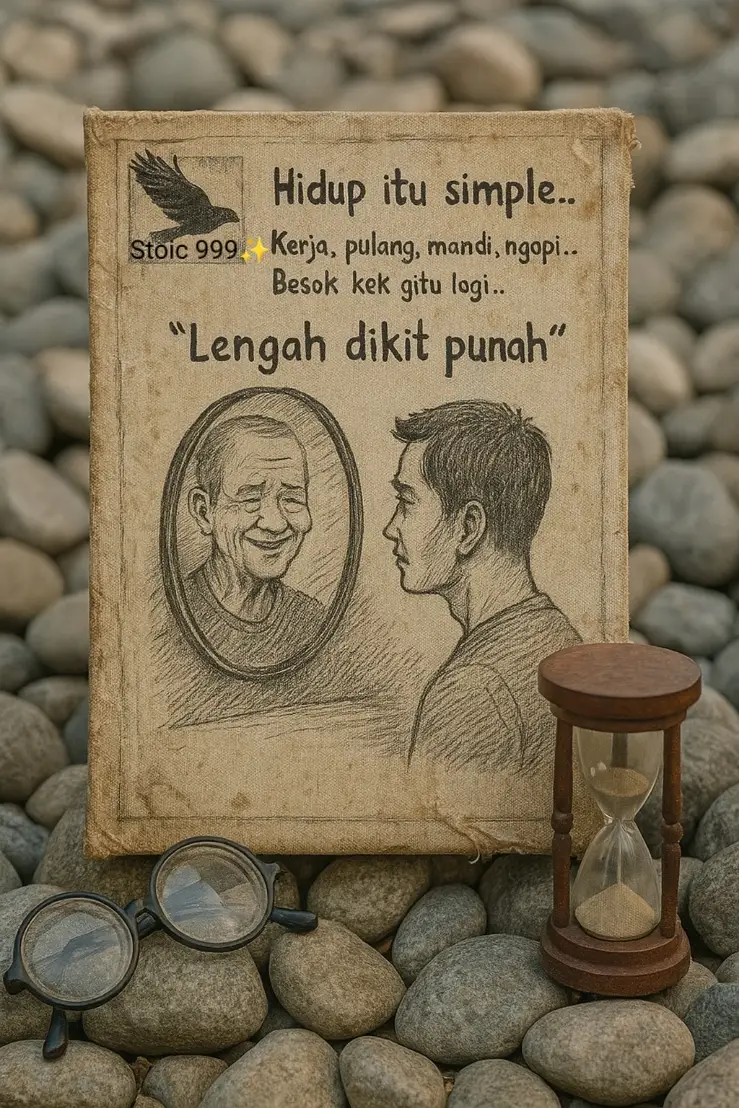 Hidup itu simple..
Stoic 999✨
Kerja, pulang, mandi, ngopi..
Besok kek gitu logi..
"Lengah dikit punah"